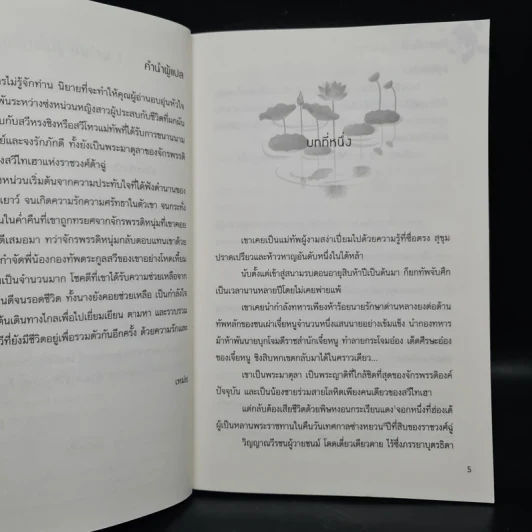 คำนำผู้แปล
รไม่รู้จักท่าน นิยายที่จะทำให้คุณผู้อ่านอบอุ่นหัวใจ
พันระหว่างซ่งหน่วนหญิงสาวผู้ประสบกับชีวิตที่ผกผัน
บกับสวีหรงชิงหรือสวีโหวแม่ทัพที่ได้รับการขนานนาม
ย์และจงรักภักดี ทั้งยังเป็นพระมาตุลาของจักรพรรดิ
งสวีไทเฮาแห่งราชวงศ์ต้าฉู่
งหน่วนเริ่มต้นจากความประทับใจที่ได้ฟังตำนานของ
เยาว์ จนเกิดความรักความศรัทธาในตัวเขา จนกระทั่ง
นในค่ำคืนที่เขาถูกทรยศจากจักรพรรดิหนุ่มที่เขาคอย
ดีเสมอมา ทว่าจักรพรรดิหนุ่มกลับตอบแทนเขาด้วย
กำจัดพี่น้องกองทัพตระกูลสวีของเขาอย่างโหดเหี้ยม
เป็นจำนวนมาก โชคดีที่เขาได้รับความช่วยเหลือจาก
นดีจนรอดชีวิต ทั้งนางยังคอยช่วยเหลือ เป็นกำลังใจ
ต้นเดินทางไกลเพื่อไปเยี่ยมเยียน ตามหา และรวบรวม
วีที่ยังมีชีวิตอยู่เพื่อรวมตัวกันอีกครั้ง ด้วยความรักและ
เหม่ย
บทที่หนึ่ง
เขาเคยเป็นแม่ทัพผู้งามสง่าเปี่ยมไปด้วยความรู้ที่ซื่อตรง สุขุม
ปราดเปรียวและห้าวหาญอันดับหนึ่งในใต้หล้า
นับตั้งแต่เข้าสู่สนามรบตอนอายุสิบห้าปีเป็นต้นมา ก็ยกทัพจับศึก
เป็นเวลานานหลายปีโดยไม่เคยพ่ายแพ้
เขาเคยนำกำลังทหารเพียงห้าร้อยนายรักษาด่านหลางยงต่อต้าน
ทัพหลักของชนเผ่าเจี๋ยหนูจำนวนหนึ่งแสนนายอย่างเข้มแข็ง นำกองทหาร
ม้าห้าพันนายบุกโจมตีราชสำนักเจี๋ยหนู ทำลายกระโจมอ๋อง เด็ดศีรษะอ๋อง
ของเจี๋ยหนู ชิงสิบหกเขตกลับมาได้ในคราวเดียว...
เขาเป็นพระมาตุลา เป็นพระญาติที่ใกล้ชิดที่สุดของจักรพรรดิองค์
ปัจจุบัน และเป็นน้องชายร่วมสายโลหิตเพียงคนเดียวของสวีไทเฮา
แต่กลับต้องเสียชีวิตด้วยพิษหงอนกระเรียนแดงจอกหนึ่งที่ฮ่องเต้
ผู้เป็นหลานพระราชทานในคืนวันเทศกาลซ่างหยวนปีที่สิบของราชวงศ์ฉู่
วิญญาณวีรชนผู้วายชนม์ โดดเดี่ยวเดียวดาย ไร้ซึ่งภรรยาบุตรธิดา
5